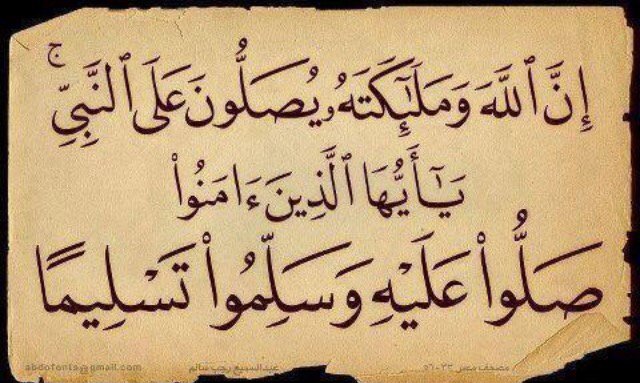 إِنَّ ٱللَّهَ وَمَلَـٰٓئِكَتَهُۥ يُصَلُّونَ عَلَى ٱلنَّبِىِّ ۚ
يَـٰٓأَيُّهَا ٱلَّذِينَ ءَامَنُوا۟
صَلُّوا۟ عَلَيْهِ وَسَلِّمُوا۟ تَسْلِيمًا
مصحف مصر ٣٣ - ٥٦
عبدالسميع رجب سالم
abdofonts@gmail.com